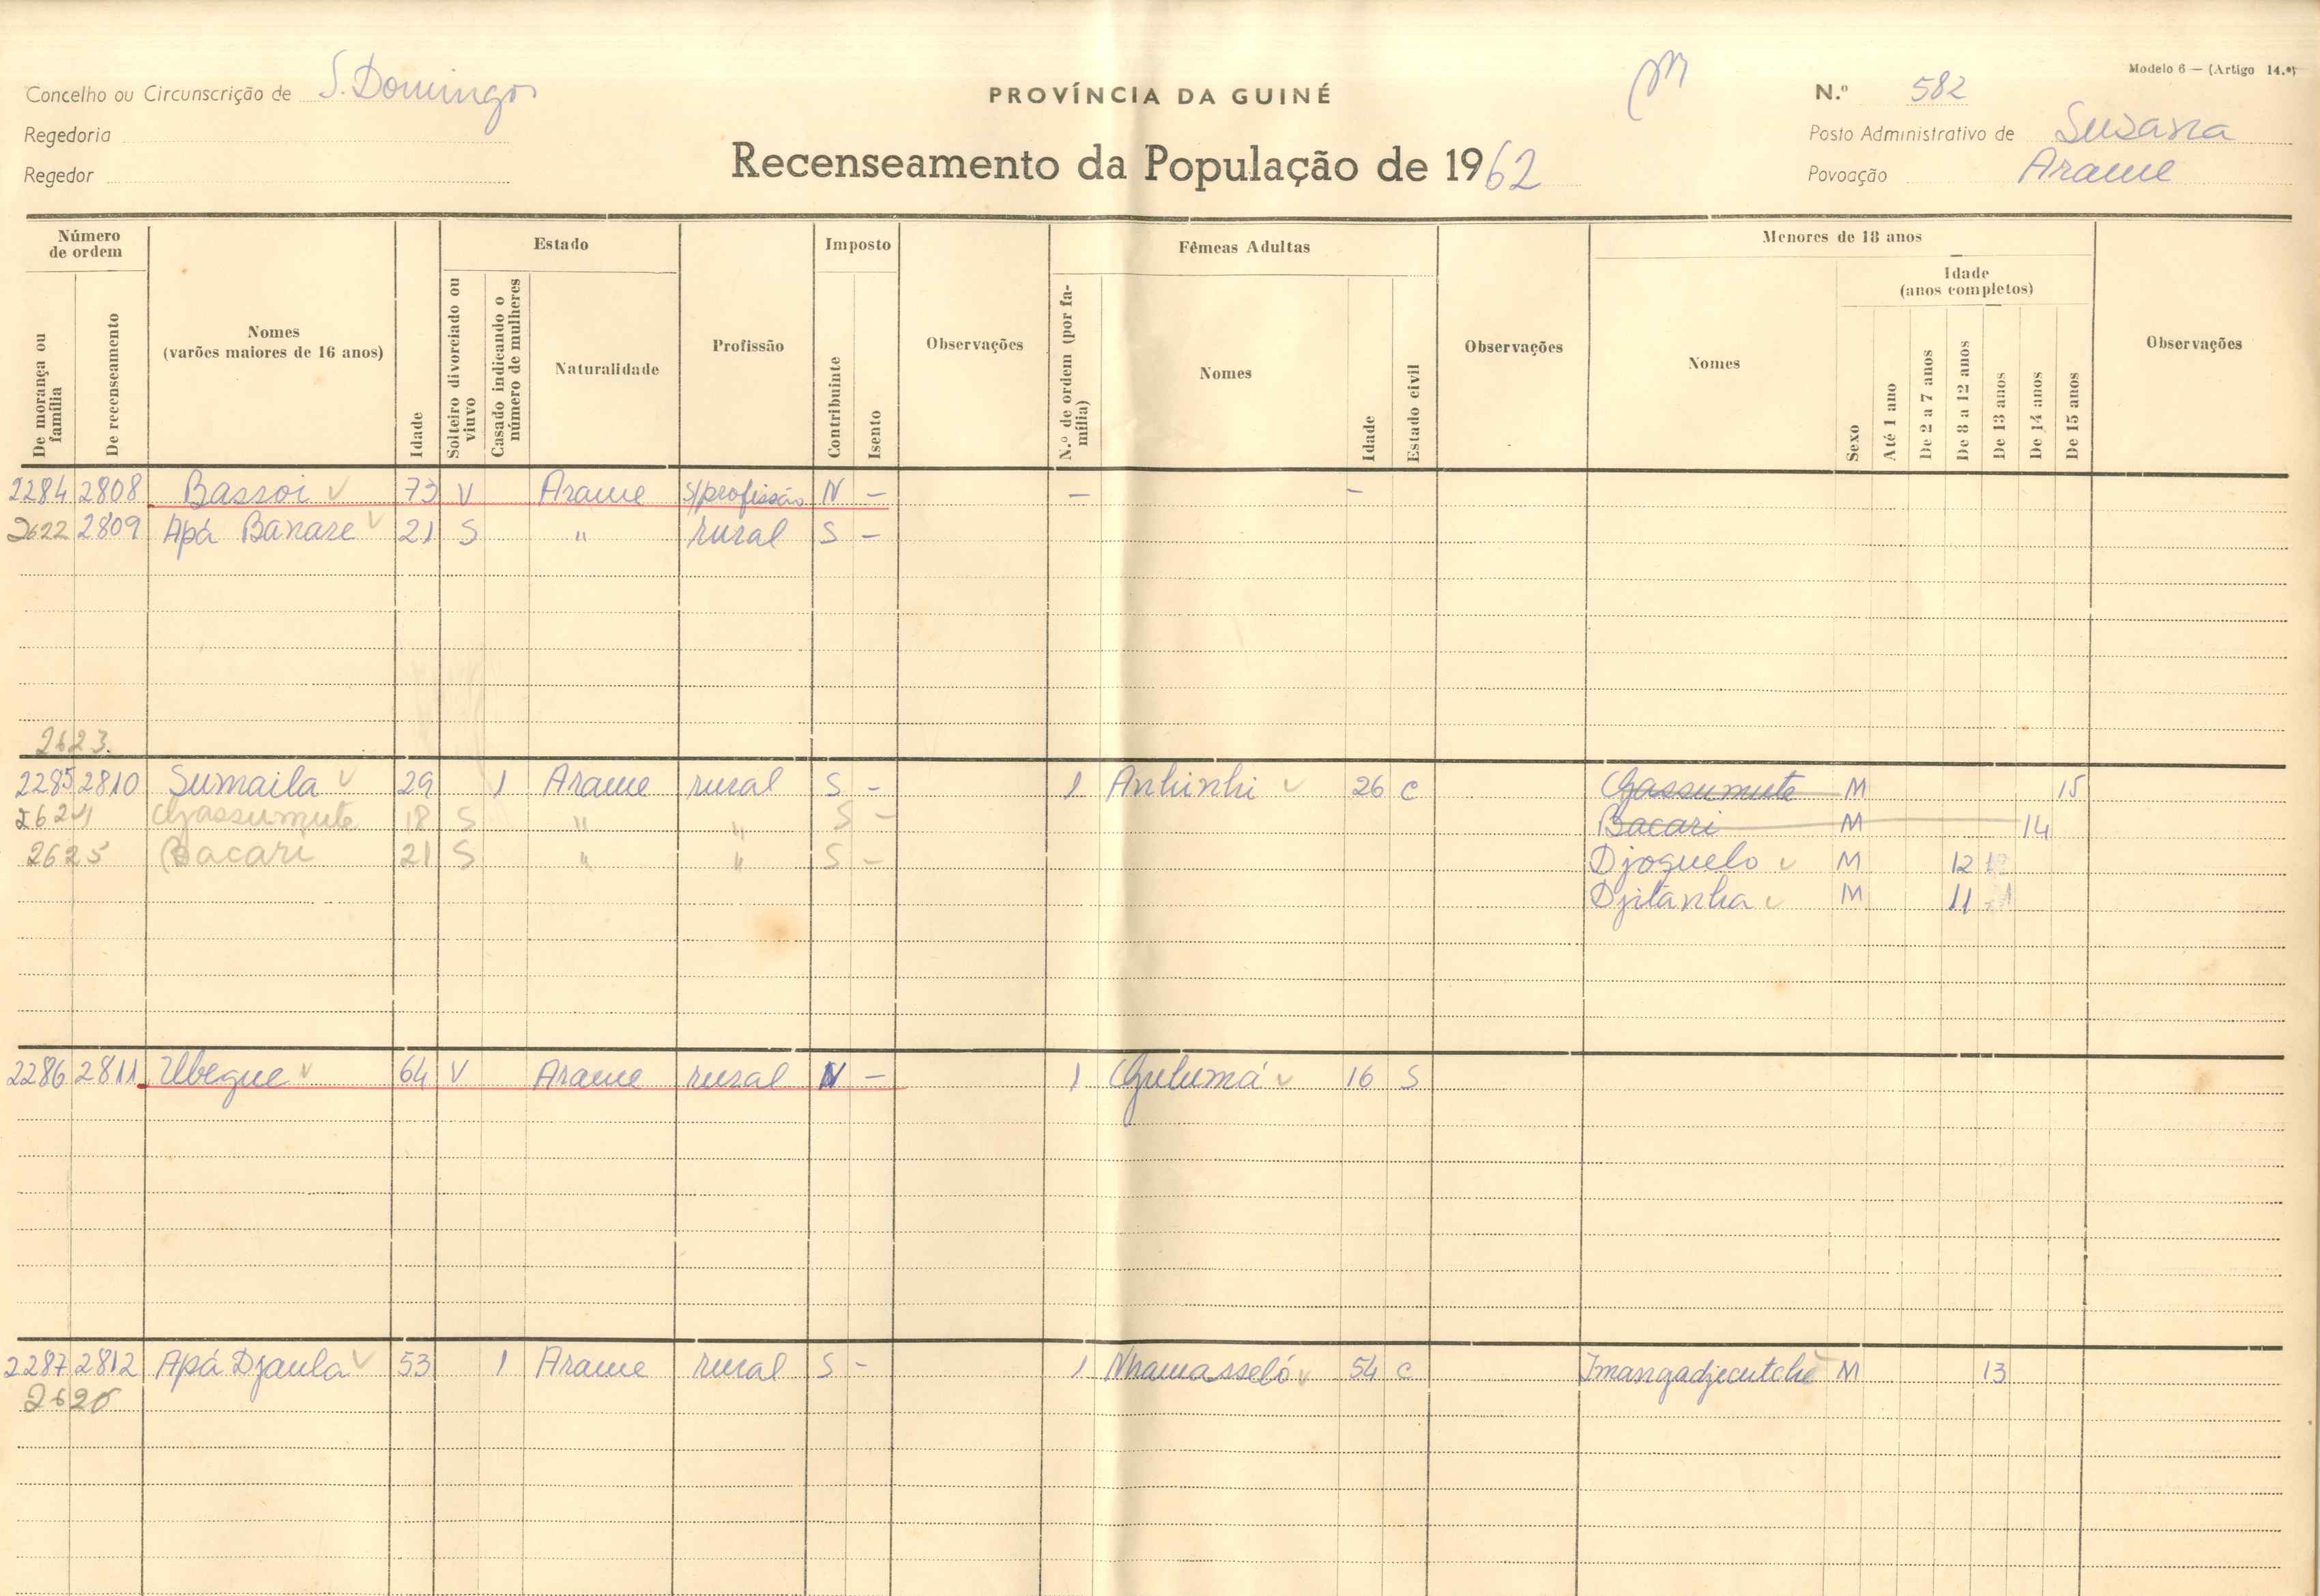 Modelo 6 — (Artigo 14.º)
Concelho ou Circunscrição de S. Domingos
PROVÍNCIA DA GUINÉ
N.º 582
Regedoria
Posto Administrativo de Suzana
Regedor
Recenseamento da População de 1962
Povoação Arame
Número de ordem
De morança ou família
De recenseamento
Nomes (varões maiores de 16 anos)
Idade
Estado
Solteiro divorciado ou viuvo
Casado indicando o número de mulheres
Naturalidade
Profissão
Imposto
Contribuinte
Isento
Observações
Fêmeas Adultas
N.º de ordem (por família)
Nomes
Idade
Estado civil
Observações
Menores de 18 anos
Nomes
Sexo
Idade (anos completos)
Até 1 ano
De 2 a 7 anos
De 8 a 12 anos
De 13 anos
De 14 anos
De 15 anos
Observações
2284 2808 Bassoi 73 V Arame s/profissão N - - -
2622 2809 Apá Banare 21 S " rural S -
2623
2285 2810 Sumaila 29 1 Arame rural S - 1 Anhinhi 26 C Gassumute M 15
2624 Gassumute 18 S " " S - Bacari M 14
2625 Bacari 21 S " " S - Djoguelo M 12
Djitanha M 11
2286 2811 Ubegue 64 V Arame rural N - 1 Gulumá 16 S
2287 2812 Apá Djaula 53 1 Arame rural S - 1 Nhamasseló 54 C Imangadjecutche M 13